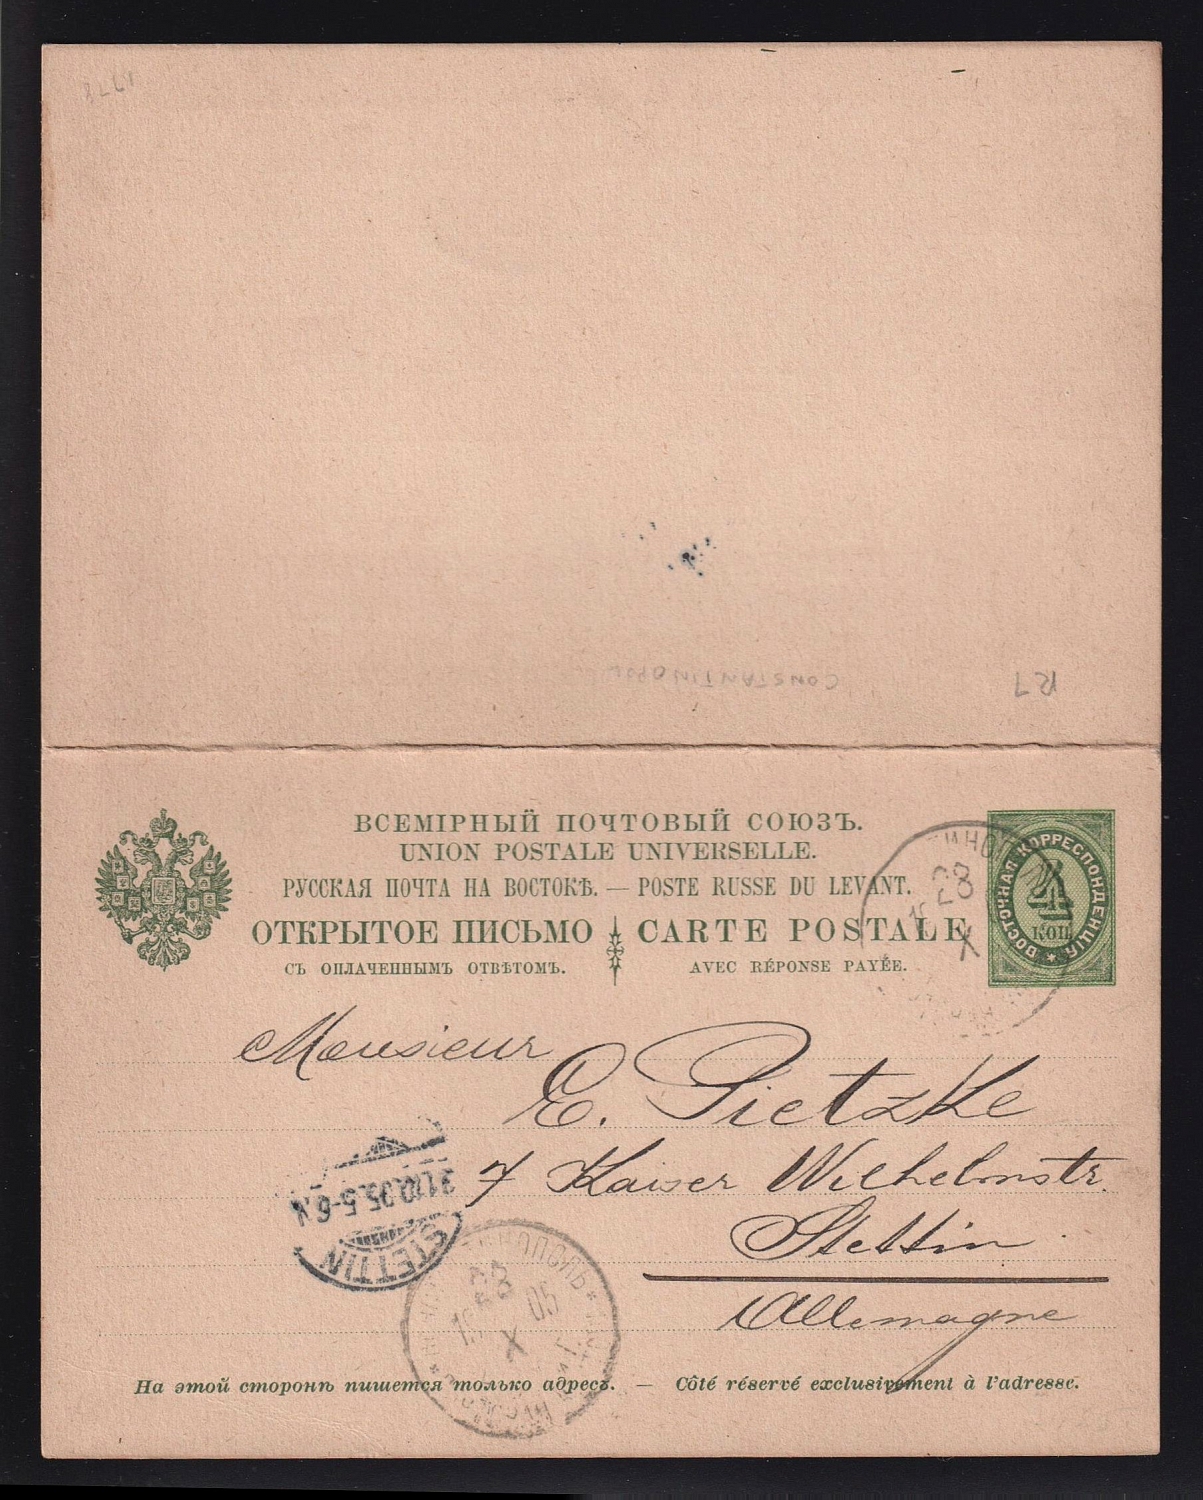 CONSTANTINOPOL
ВСЕМІРНЫЙ ПОЧТОВЫЙ СОЮЗЪ.
UNION POSTALE UNIVERSELLE.
РУССКАЯ ПОЧТА НА ВОСТОКѢ. — POSTE RUSSE DU LEVANT.
ОТКРЫТОЕ ПИСЬМО CARTE POSTALE
СЪ ОПЛАЧЕННЫМЪ ОТВѢТОМЪ. AVEC RÉPONSE PAYÉE.
ВОСТОЧНАЯ КОРРЕСПОНДЕНЦІЯ
4
КОП
28
X
Monsieur
E. Pietzke
7 Kaiser Wilhelmstr.
Stettin
Allemagne
31.10.05.5-6.N
STETTIN
28
19 05
X
На этой сторонѣ пишется только адресъ. — Côté réservé exclusivement à l'adresse.